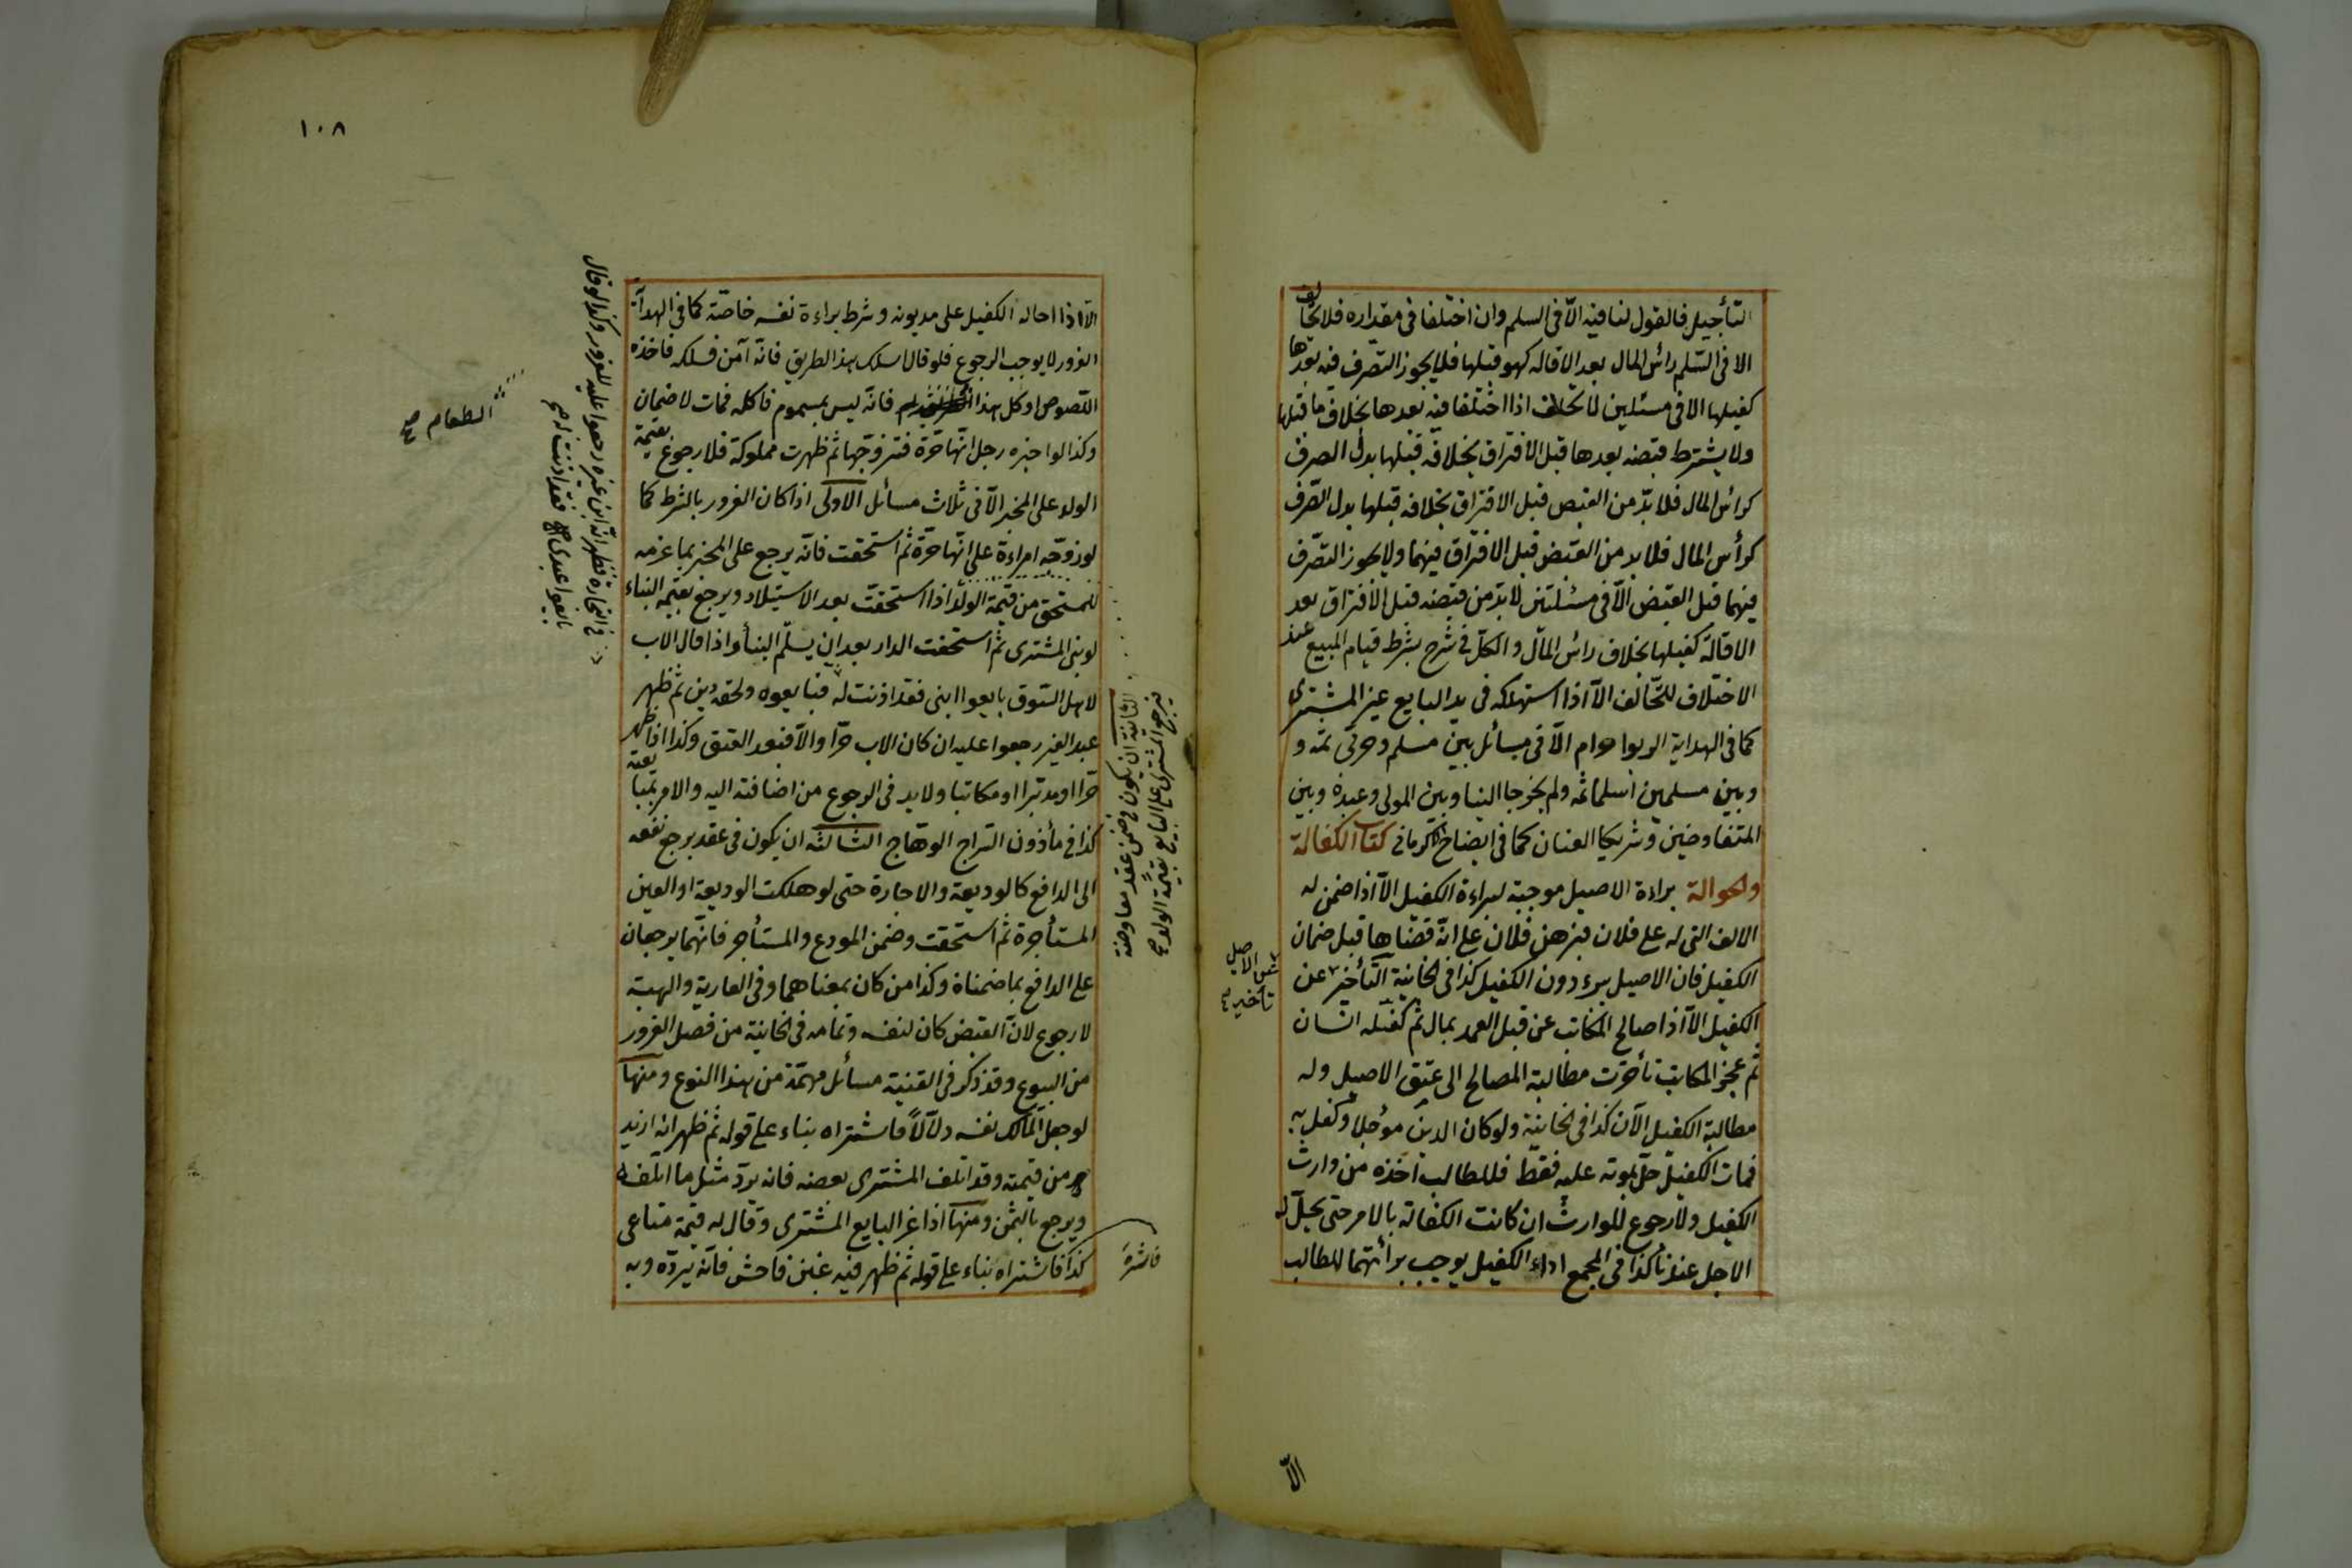 التأجيل فالقول لنافيه الّا فى السلم وان اختلفا فى مقداره فلا تحالف
الا فى السّلم رأس المال بعد الاقاله كهو قبلها فلا يجوز التصرف فيه بعدها
كقبلها الا فى مسئلتين لا تحالف اذا اختلفا فيه بعدها بخلاف ما قبلها
ولا يشترط قبضه بعدها قبل الافتراق بخلافه قبلها بدل الصرف
كرأس المال فلا بدّ من القبض قبل الافتراق بخلافه قبلها بدل الصّرف
كرأس المال فلا بد من القبض قبل الافتراق فيهما ولا يجوز التصّرف
فيهما قبل القبض الّا فى مسئلتين لا بدّ من قبضه قبل الافتراق بعد
الاقالة كقبلها بخلاف رأس المال والكل فى شرح يشرط قيام المبيع عند
الاختلاف للتّحالف الّا اذا استهلكه فى يد البايع غير المشترى
كما فى الهداية الربوا حرام الّا فى مسائل بين مسلم وحربى ثمه و
وبين مسلمين اسلما ثمه ولم يخرجا الينا وبين المولى وعبده وبين
المتفاوضين وشريكا العنان كما فى ايضاح الكرمانى كتاب الكفالة
والحوالة براءة الاصيل موجبة لبراءة الكفيل الّا اذا ضمن له
الالف التى له على فلان فبرهن فلان على انّه قضاها قبل ضمان
الكفيل فان الاصيل يبرء دون الكفيل كذا فى الخانية التأخير عن
عن الاصيل تأخير صح
الكفيل الّا اذا صالح المكاتب عن قتل العمد بمال ثم كفله انسان
ثم عجز المكاتب تأخرت مطالبة المصالح الى عتق الاصيل وله
مطالبة الكفيل الآن كذا فى الخانية ولو كان الدين مؤجلا وكفل به
فمات الكفيل حلّ بموته عليه فقط فللطالب اخذه من وارث
الكفيل ولا رجوع للوارث ان كانت الكفالة بالامر حتى يحلّ
الاجل عندنا كذا فى المجمع اداء الكفيل يوجب برائتهما للطالب
الّا
١٠٨
الّا اذا احاله الكفيل على مديونه وشرط براءة نفسه خاصّة كما فى الهداية
الغرور لا يوجب الرجوع فلو قال اسلك هذا الطريق فانّه آمن فسلكه فاخذه
اللصوص او كل هذا فانّه ليس بمسموم فاكله فمات لا ضمان
الطعام صح
وكذا لو اخبره رجل انّها حرّة فتزوّجها ثم ظهرت مملوكة فلا رجوع بقيمة
الولد على المخبر الّا فى ثلاث مسائل الاولى اذا كان الغرور بالشرط كما
لو زوّجه امراءة على انّها حرّة ثم استحقت فانّه يرجع على المخبر بما غرمه
للمستحق من قيمة الولد اذا استحقت بعد الاستيلاد ويرجع بقيمة البناء
الثانية ان يكون فى ضمن عقد معاوضة
فيرجع المشترى على البايع بقيمة الولد صح
لو بنى المشترى ثم استحقت الدار بعد ان يسلّم البناء واذا قال الاب
لاهل السّوق بايعوا ابنى فقد اذنت له فبايعوه ولحقه دين ثم ظهر
عبد الغير رجعوا عليه ان كان الاب حرّا والّا فبعد العتق وكذا اذا ظهر
فى التجارة فظهر انّه ابن غيره رجعوا عليه للغرور وكذا لو قال
بايعوا عبدى فقد اذنت له صح
حرّا او مدبّرا او مكاتبا ولا بد فى الرجوع من اضافته اليه والامر بمبايعته
كذا فى مأذون السّراج الوهّاج الثالثه ان يكون فى عقد يرجع نفعه
الى الدافع كالوديعة والاجارة حتى لو هلكت الوديعة او العين
المستأجرة ثم استحقت وضمن المودع والمستأجر فانّهما يرجعان
على الدافع بما ضمناه وكذا من كان بمعناهما وفى العارية والهبة
لا رجوع لانّ القبض كان لنفسه وتمامه فى الخانية من فصل الغرور
من البيوع وقد ذكر فى القنية مسائل مهمّة من هذا النوع ومنها
لو جعل المالك نفسه دلّالاً فاشتراه بناء على قوله ثم ظهر انّه ازيد
من قيمته وقد اتلف المشترى بعضه فانه يردّ مثل ما اتلفه
ويرجع بالثمن ومنها اذا غر البايع المشترى وقال له قيمة متاعى
كذا فاشتراه بناء على قوله ثم ظهر فيه غبن فاحش فانّه يردّه وبه
فاشتره